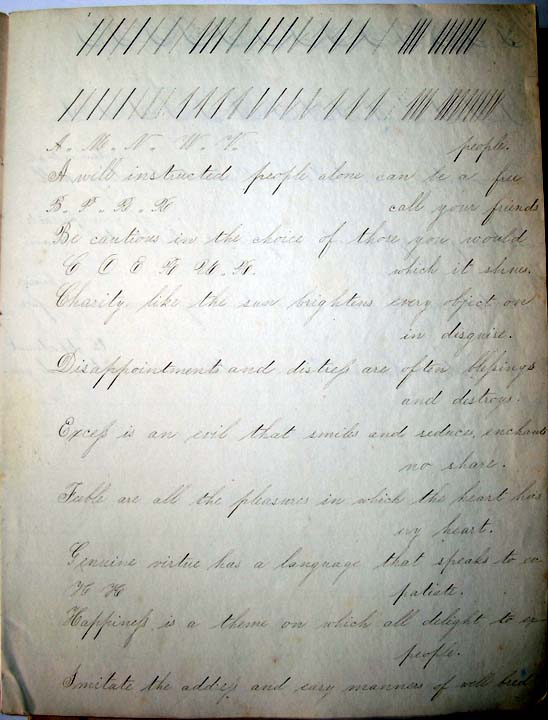 A. M. N. W. V. people.
A will instructed people alone can be a free
B. P. B. R call your friends
Be cautious in the choice of those you would
which it shines.
Charity, like the sun brightens every object on
in disguise.
Disappointments and distreſs are often bleſsings
and destroys.
Exceſs is an evil that smiles and seduces, enchants
no share.
Feeble are all the pleasures in which the heart has
ery heart.
Genuine virtue has a language that speaks to ev
H H patiate.
Happineſs is a theme on which all delight to ex
people.
Imitate the addreſs and easy manners of well bred